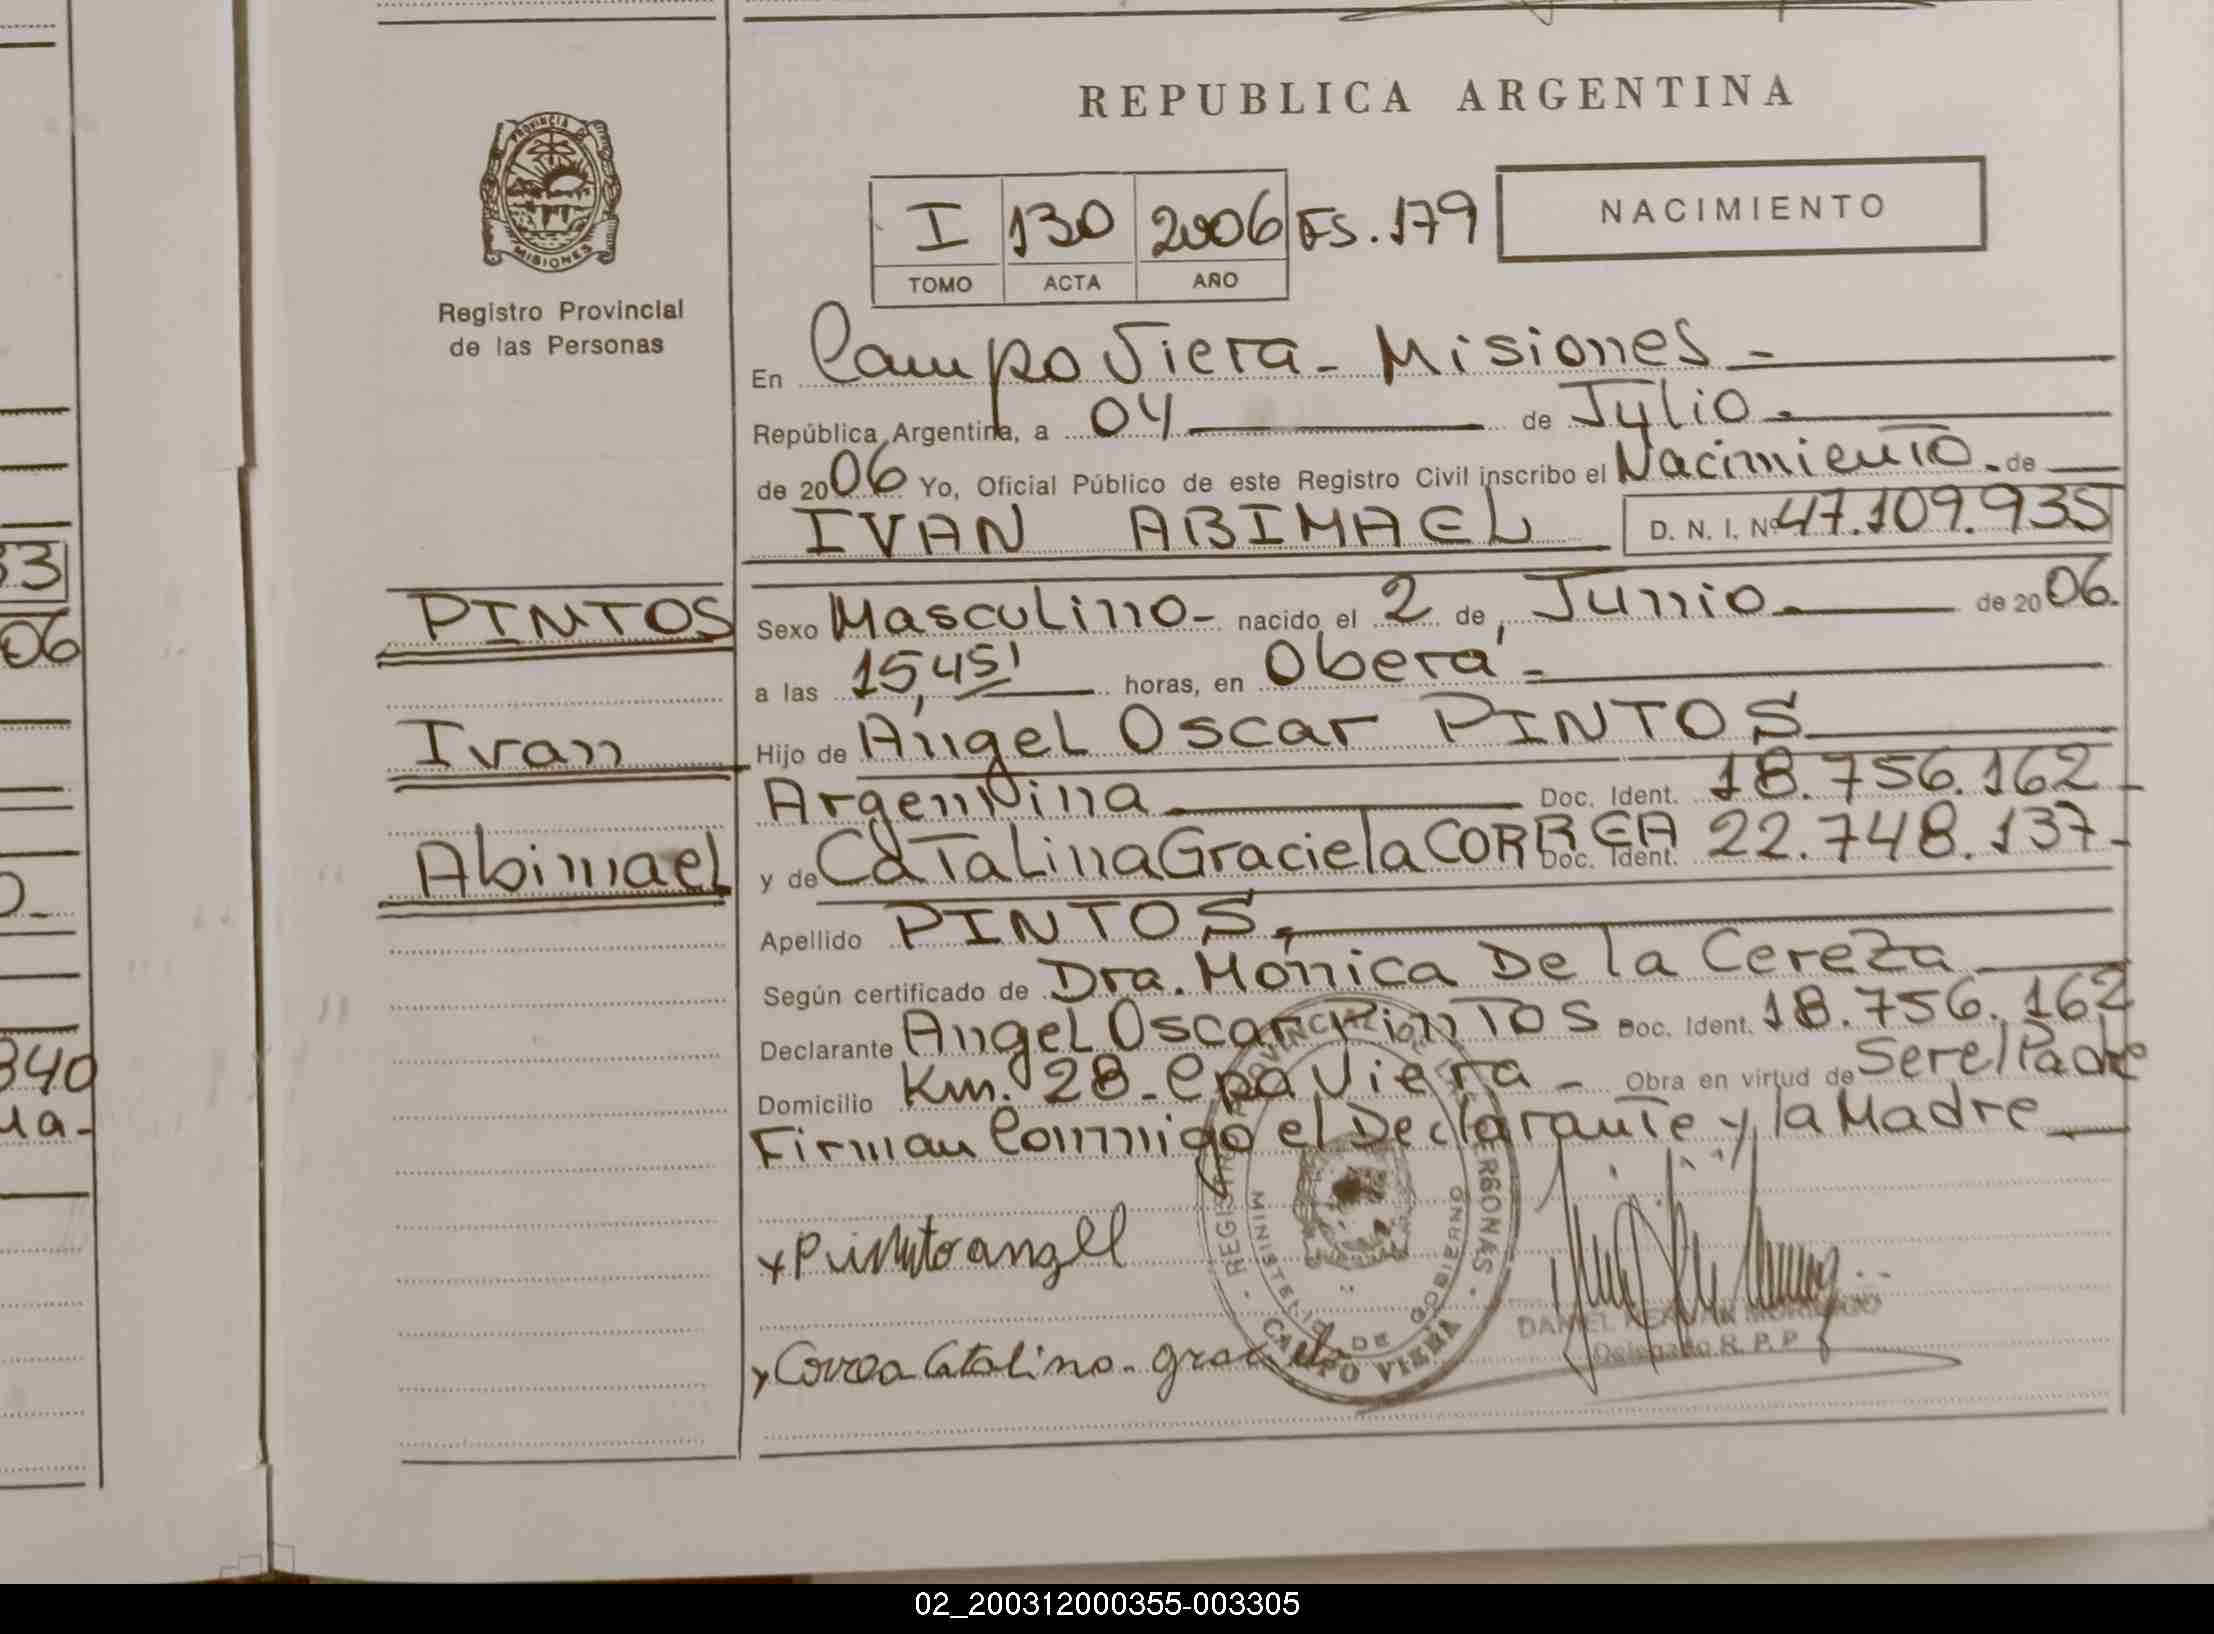 REPUBLICA ARGENTINA
PROVINCIA DE
MISIONES
Registro Provincial
de las Personas
I 130 2006 FS. 179
TOMO ACTA AÑO
NACIMIENTO
En Campo Viera - Misiones -
República Argentina, a 04 de Julio -
de 2006 Yo, Oficial Público de este Registro Civil inscribo el Nacimiento - de
IVAN ABIMAEL D. N. I. Nº 47.109.935
PINTOS
Ivan
Abimael
Sexo Masculino - nacido el 2 de, Junio - de 2006.
a las 15,45' horas, en Oberá -
Hijo de Angel Oscar PINTOS
Argentina Doc. Ident. 18.756.162 -
y de Catalina Graciela CORREA Doc. Ident. 22.748.137 -
Apellido PINTOS.
Según certificado de Dra. Mónica De la Cereza
Declarante Angel Oscar Pintos Doc. Ident. 18.756.162
Domicilio Km. 28 - Cpo Viera - Obra en virtud de Ser el Padre
Firman Conmigo el Declarante y la Madre
x Pinto angel
x Correa Catalina - graciela
REGISTRO PROVINCIAL DE LAS PERSONAS
MINISTERIO DE GOBIERNO
CAMPO VIERA
DANIEL
Delegado R. P. P.
33
06
340
02_200312000355-003305